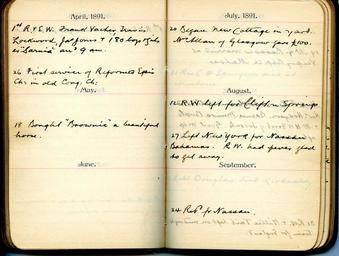 April, 1891.
1st R. & E. W. Frank
Lockwood, & 180 boys & girls
"Sarnia" at 9 am.
26 First service of Reformed Epis.
Ch: in old Cong. Ch:
May.
18 Bought "Brownie" a beautiful
horse.
June.
July, 1891.
20 Began New Cottage in yard.
of Glasgow gave £100.
August.
12 R.W. left for Clifton Springs
27 Left New York for Nassau
Bahamas. R.W. had fever glad
to get away.
September.
24 for Nassau.